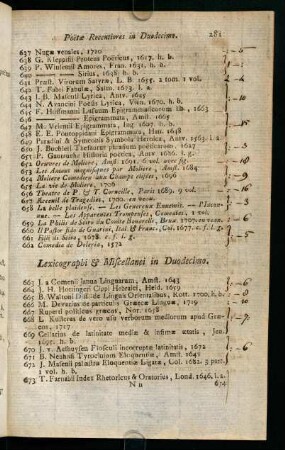 Poëtæ Recentiores in Duodecimo. 281
637 Nugæ venales, 1720
638 G. Kleppisii Proteus Poëticus, 1617. h. b.
639 P. Winsemii Amores, Fran. 1631. h. b.
640 Sirius, 1648. h. b.
641 Præst. Virorum Satyræ, L. B. 1655. 2 tom. 1 vol.
642 T. Fabri Fabulæ, Salm. 1673. l. a.
643 J. B. Masculi Lyrica, Antv. 1645
644 N. Avancini Poësis Lyrica, Vien. 1670. h. b.
645 F. Hoffmanni Lusuum Epigrammaticorum lib. , 1663
646 Epigrammata, Amst. 1665
647 M. Verini Epigrammata, Ing. 1617. h. b.
648 E. E. Pontoppidani Epigrammata, Hun. 1648
649 Paradini & Symeonis Symbola Heroica, Antv. 1563. l. a.
650 J. Buchleri Thesaurus phrasium poëticarum, 1627
651 P. Gautruche Historia poetica, Antv. 1686. l. g.
652 Oeuvres de Moliere, Amst. 1691. 6 vol. avec fig.
653 Les Amans magnifiques par Moliere, Amst. 1684
654 Moliere Comedien aux Champs elisées, 1696
655 La vie de Moliere, 1706
656 Theatre de P. & T. Corneille, Paris 1689. 9 vol.
657 Recueil de Tragedies, 1700. en veau.
658 La belle plaideuse. Les Genereux Ennemis.
Les Apparentes Trompeuses, Comedies, 1 vol.
659 La Philis de Scire du Comte Bonarelli, Brux. 1707. en veau.
660 Il Pastor fido de Guarini, Ital. & Franc. Col. 1677. c. f. l. g.
661 Filli di Sciro, 1678. c. f. l. g.
662 Comedia de Delerio, 1572
Lexicographi & Miscellanei in Duodecimo.
663 J. a Comenii Janua Linguarum, Amst. 1643
664 J. H. Hottingeri Cippi Hebraici, Heid. 1659
665 B. Waltoni Diss. de Linguis Orientalibus, Rott. 1700. h. b.
666 M. Devarius de particulis Græcæ Linguæ, 1719
667 Ruperti politicus græcus, Nor. 1658
668 L. Kusterus de vero usu verborum mediorum apud Græ-
cos, 1717
669 Cellarius de latinitate mediæ & infimæ ætatis, Jen.
1695. h. b.
670 J. v. Aelhuysen Flosculi incorruptæ latinitatis, 1672
671 B. Nehusii Tyrocinium Eloquentiæ, Amst. 1648
672 J. Masenii palæstra Eloquentiæ Ligatæ, Col. 1682. 3 part.
1 vol. h. b.
673 T. Farnabii Index Rhetoricus & Oratorius, Lond. 1646. l. a.
N n 674